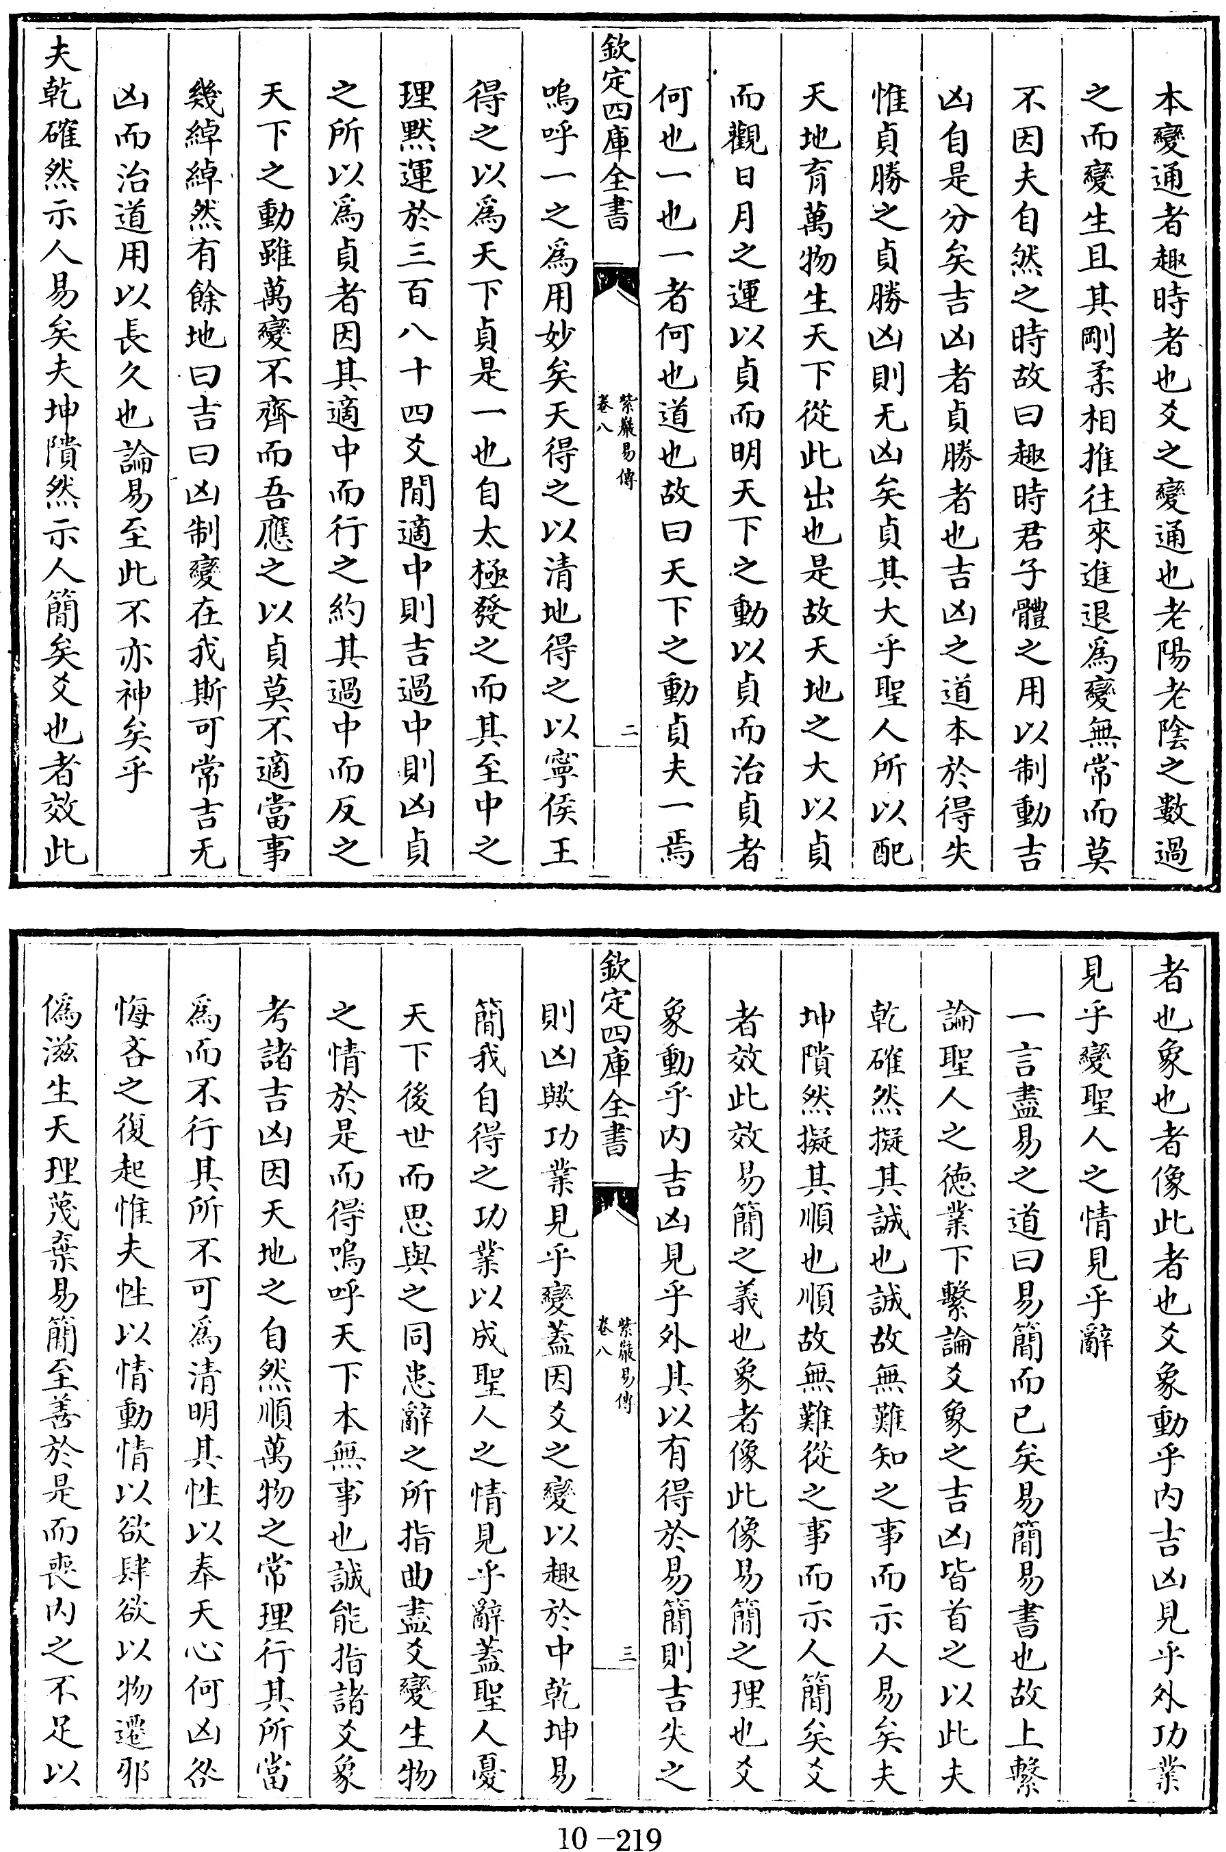 本變通者趣時者也爻之變通也老陽老陰之數過
之而變生且其剛柔相推往來進退爲變無常而莫
不因夫自然之時故曰趣時君子體之用以制動吉
凶自是分矣吉凶者貞勝者也吉凶之道本於得失
惟貞勝之貞勝凶則无凶矣貞其大乎聖人所以配
天地育萬物生天下從此出也是故天地之大以貞
而觀日月之運以貞而明天下之動以貞而治貞者
何也一也一者何也道也故曰天下之動貞夫一焉
欽定四庫全書
紫巖易傳
卷八
二
嗚呼一之爲用妙矣天得之以清地得之以寧侯王
得之以爲天下貞是一也自太極發之而其至中之
理默運於三百八十四爻間適中則吉過中則凶貞
之所以爲貞者因其適中而行之約其過中而反之
天下之動雖萬變不齊而吾應之以貞莫不適當事
幾綽綽然有餘地曰吉曰凶制變在我斯可常吉无
凶而治道用以長久也論易至此不亦神矣乎
夫乾確然示人易矣夫坤隤然示人簡矣爻也者效此
者也象也者像此者也爻象動乎内吉凶見乎外功業
見乎變聖人之情見乎辭
一言盡易之道曰易簡而已矣易簡易書也故上繫
論聖人之德業下繫論爻象之吉凶皆首之以此夫
乾確然擬其誠也誠故無難知之事而示人易矣夫
坤隤然擬其順也順故無難從之事而示人簡矣爻
者效此效易簡之義也象者像此像易簡之理也爻
象動乎内吉凶見乎外其以有得於易簡則吉失之
欽定四庫全書
紫巖易傳
卷八
三
則凶歟功業見乎變蓋因爻之變以趣於中乾坤易
簡我自得之功業以成聖人之情見乎辭蓋聖人憂
天下後世而思與之同患辭之所指曲盡爻變生物
之情於是而得嗚呼天下本無事也誠能指諸爻象
考諸吉凶因天地之自然順萬物之常理行其所當
爲而不行其所不可爲清明其性以奉天心何凶咎
悔吝之復起惟夫性以情動情以欲肆欲以物遷邪
僞滋生天理蔑棄易簡至善於是而喪内之不足以
10-219